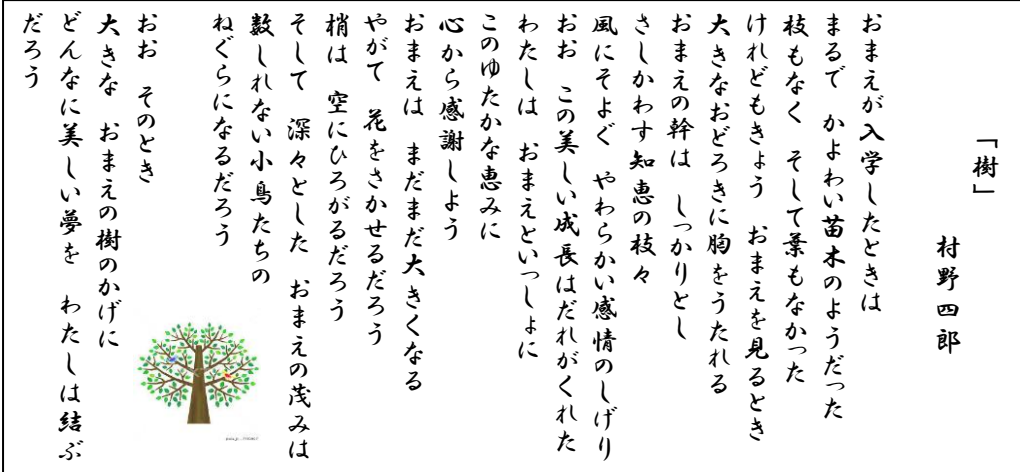 「樹」
村野四郎
おまえが入学したときは
まるで　かよわい苗木のようだった
枝もなく　そして葉もなかった
けれどもきょう　おまえを見るとき
大きなおどろきに胸をうたれる
おまえの幹は　しっかりとし
さしかわす知恵の枝々
風にそよぐ　やわらかい感情のしげり
おお　この美しい成長はだれがくれた
わたしは　おまえといっしょに
このゆたかな恵みに
心から感謝しよう
おまえは　まだまだ大きくなる
やがて　花をさかせるだろう
梢は　空にひろがるだろう
そして　深々とした　おまえの茂みは
数しれない小鳥たちの
ねぐらになるだろう
おお　そのとき
大きな　おまえの樹のかげに
どんなに美しい夢を　わたしは結ぶ
だろう